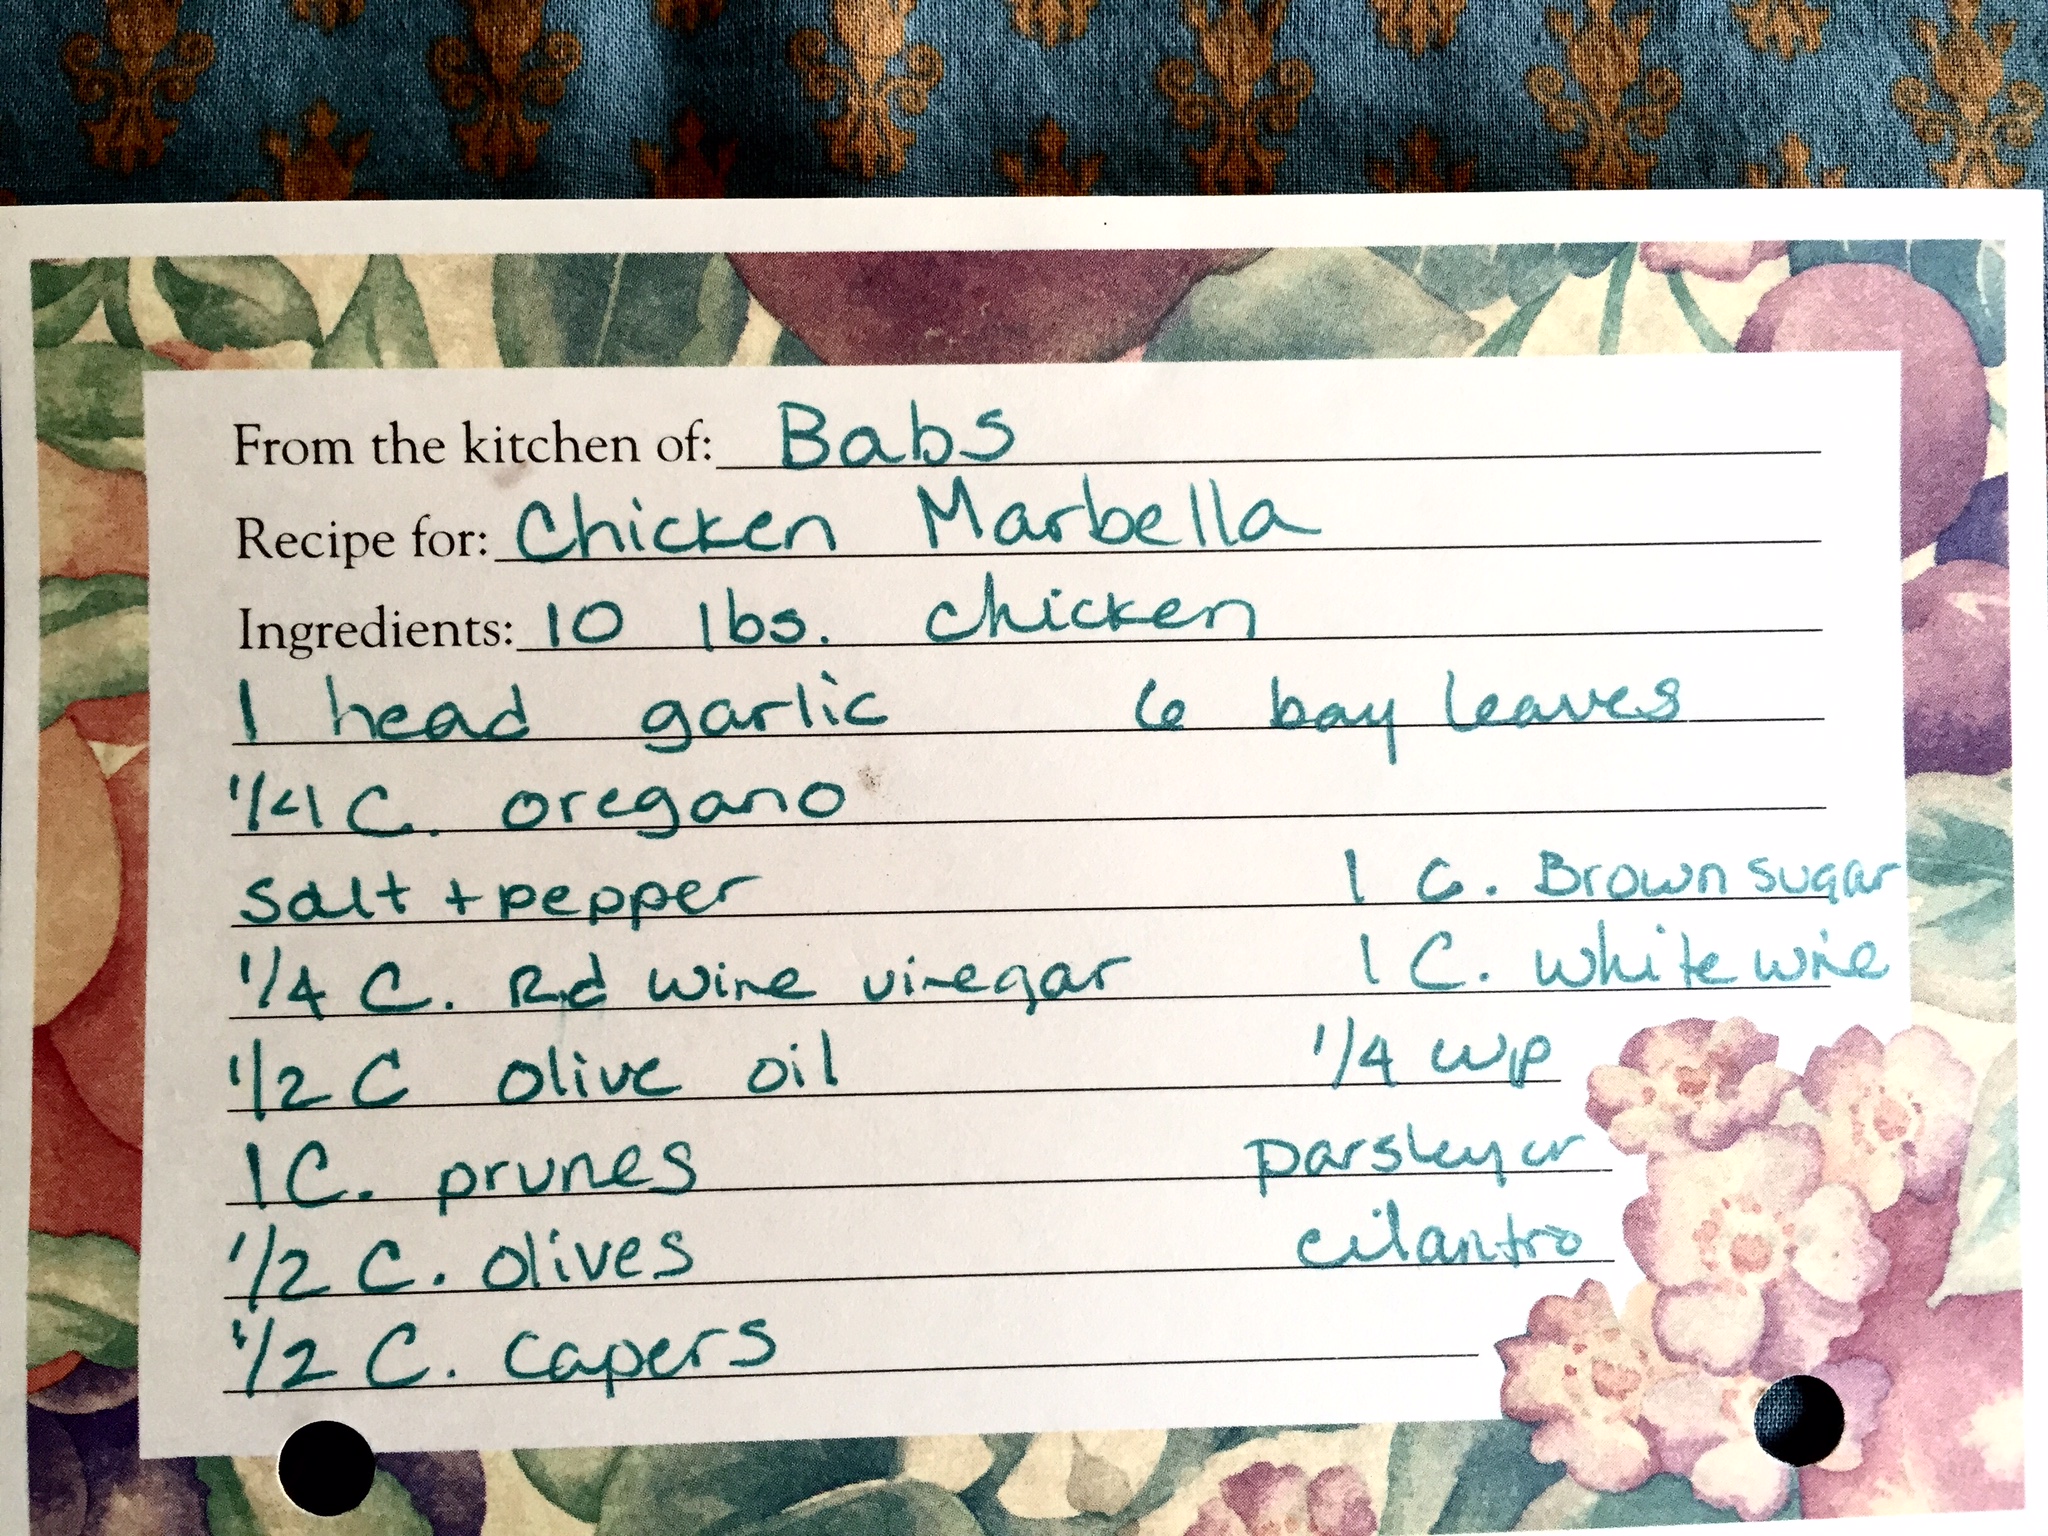 From the kitchen of: Babs
Recipe for: Chicken Marbella
Ingredients: 10 lbs. chicken
1 head garlic 6 bay leaves
1/4 C. oregano
salt + pepper 1 C. Brown sugar
1/4 C. Red wine vinegar 1 C. white wine
1/2 C olive oil 1/4 cup
1 C. prunes parsley or
1/2 C. olives cilantro
1/2 C. capers